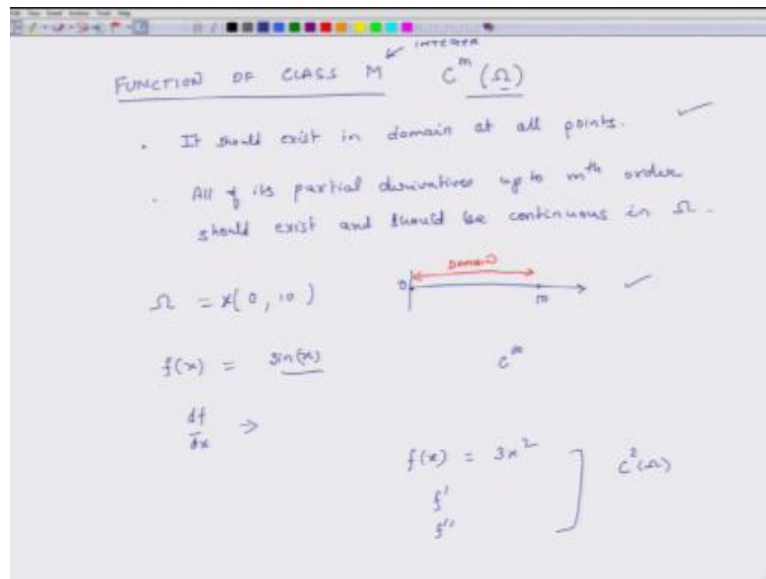 INTEGER
FUNCTION OF CLASS M C^m (Ω)
. It should exist in domain at all points.
. All of its partial derivatives up to m^th order
should exist and should be continuous in Ω.
DOMAIN
Ω = x(0, 10) 0 10
f(x) = sin(x) C^∞
df/dx →
f(x) = 3x^2
f' C^2(Ω)
f''